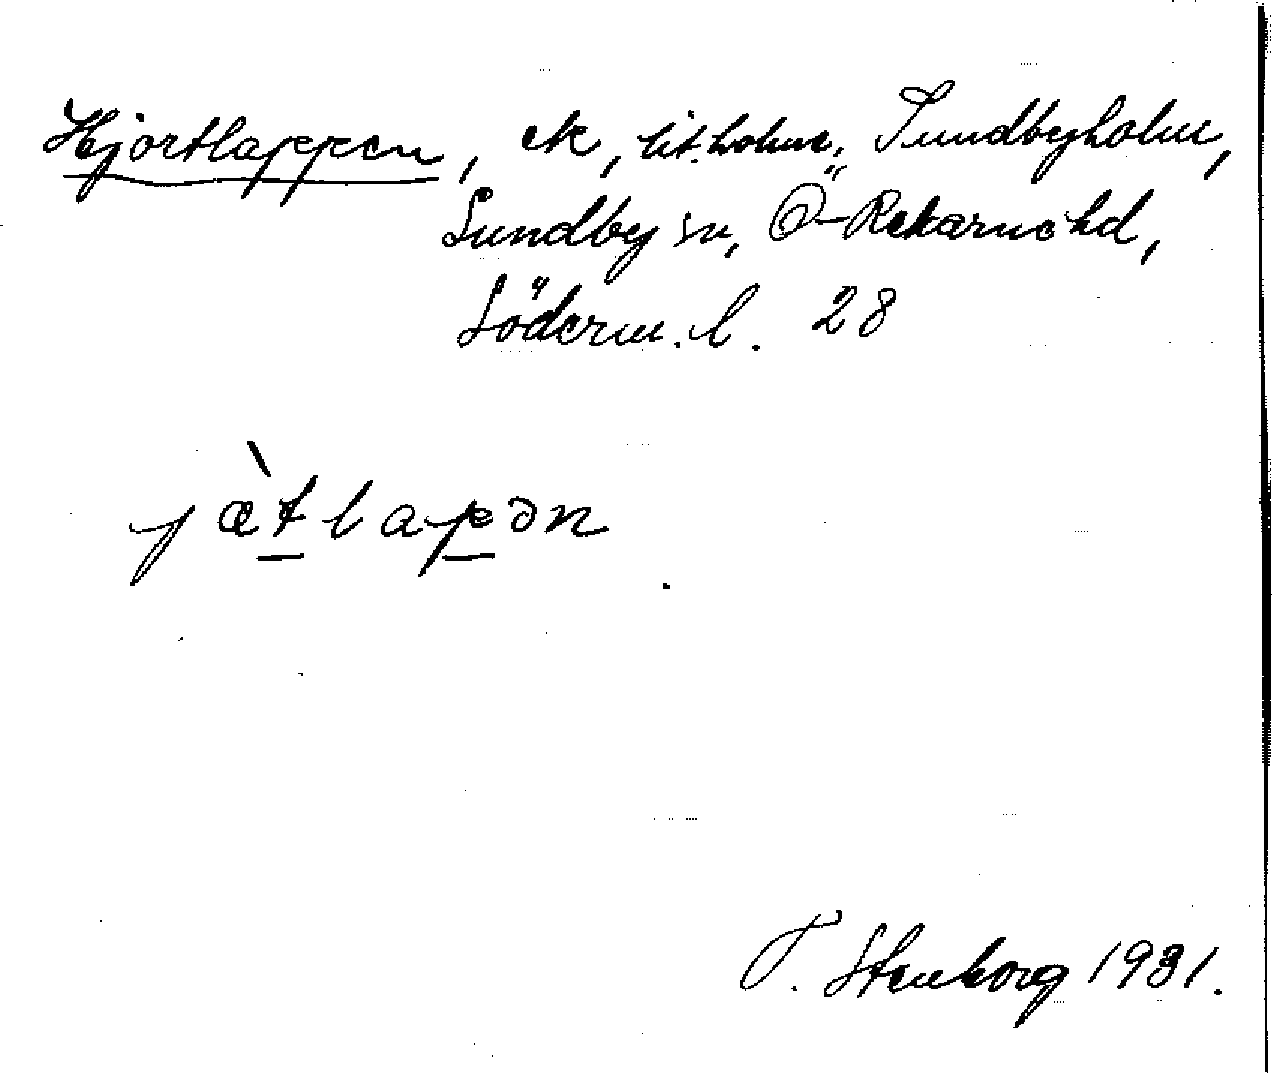 Hjortlappen, ek, lit. holme, Sundbyholm,
Sundby sn, Ö-Rekarne hd,
Söderm. l. 28
jæ̀tlapən
T. Stenborg 1931.